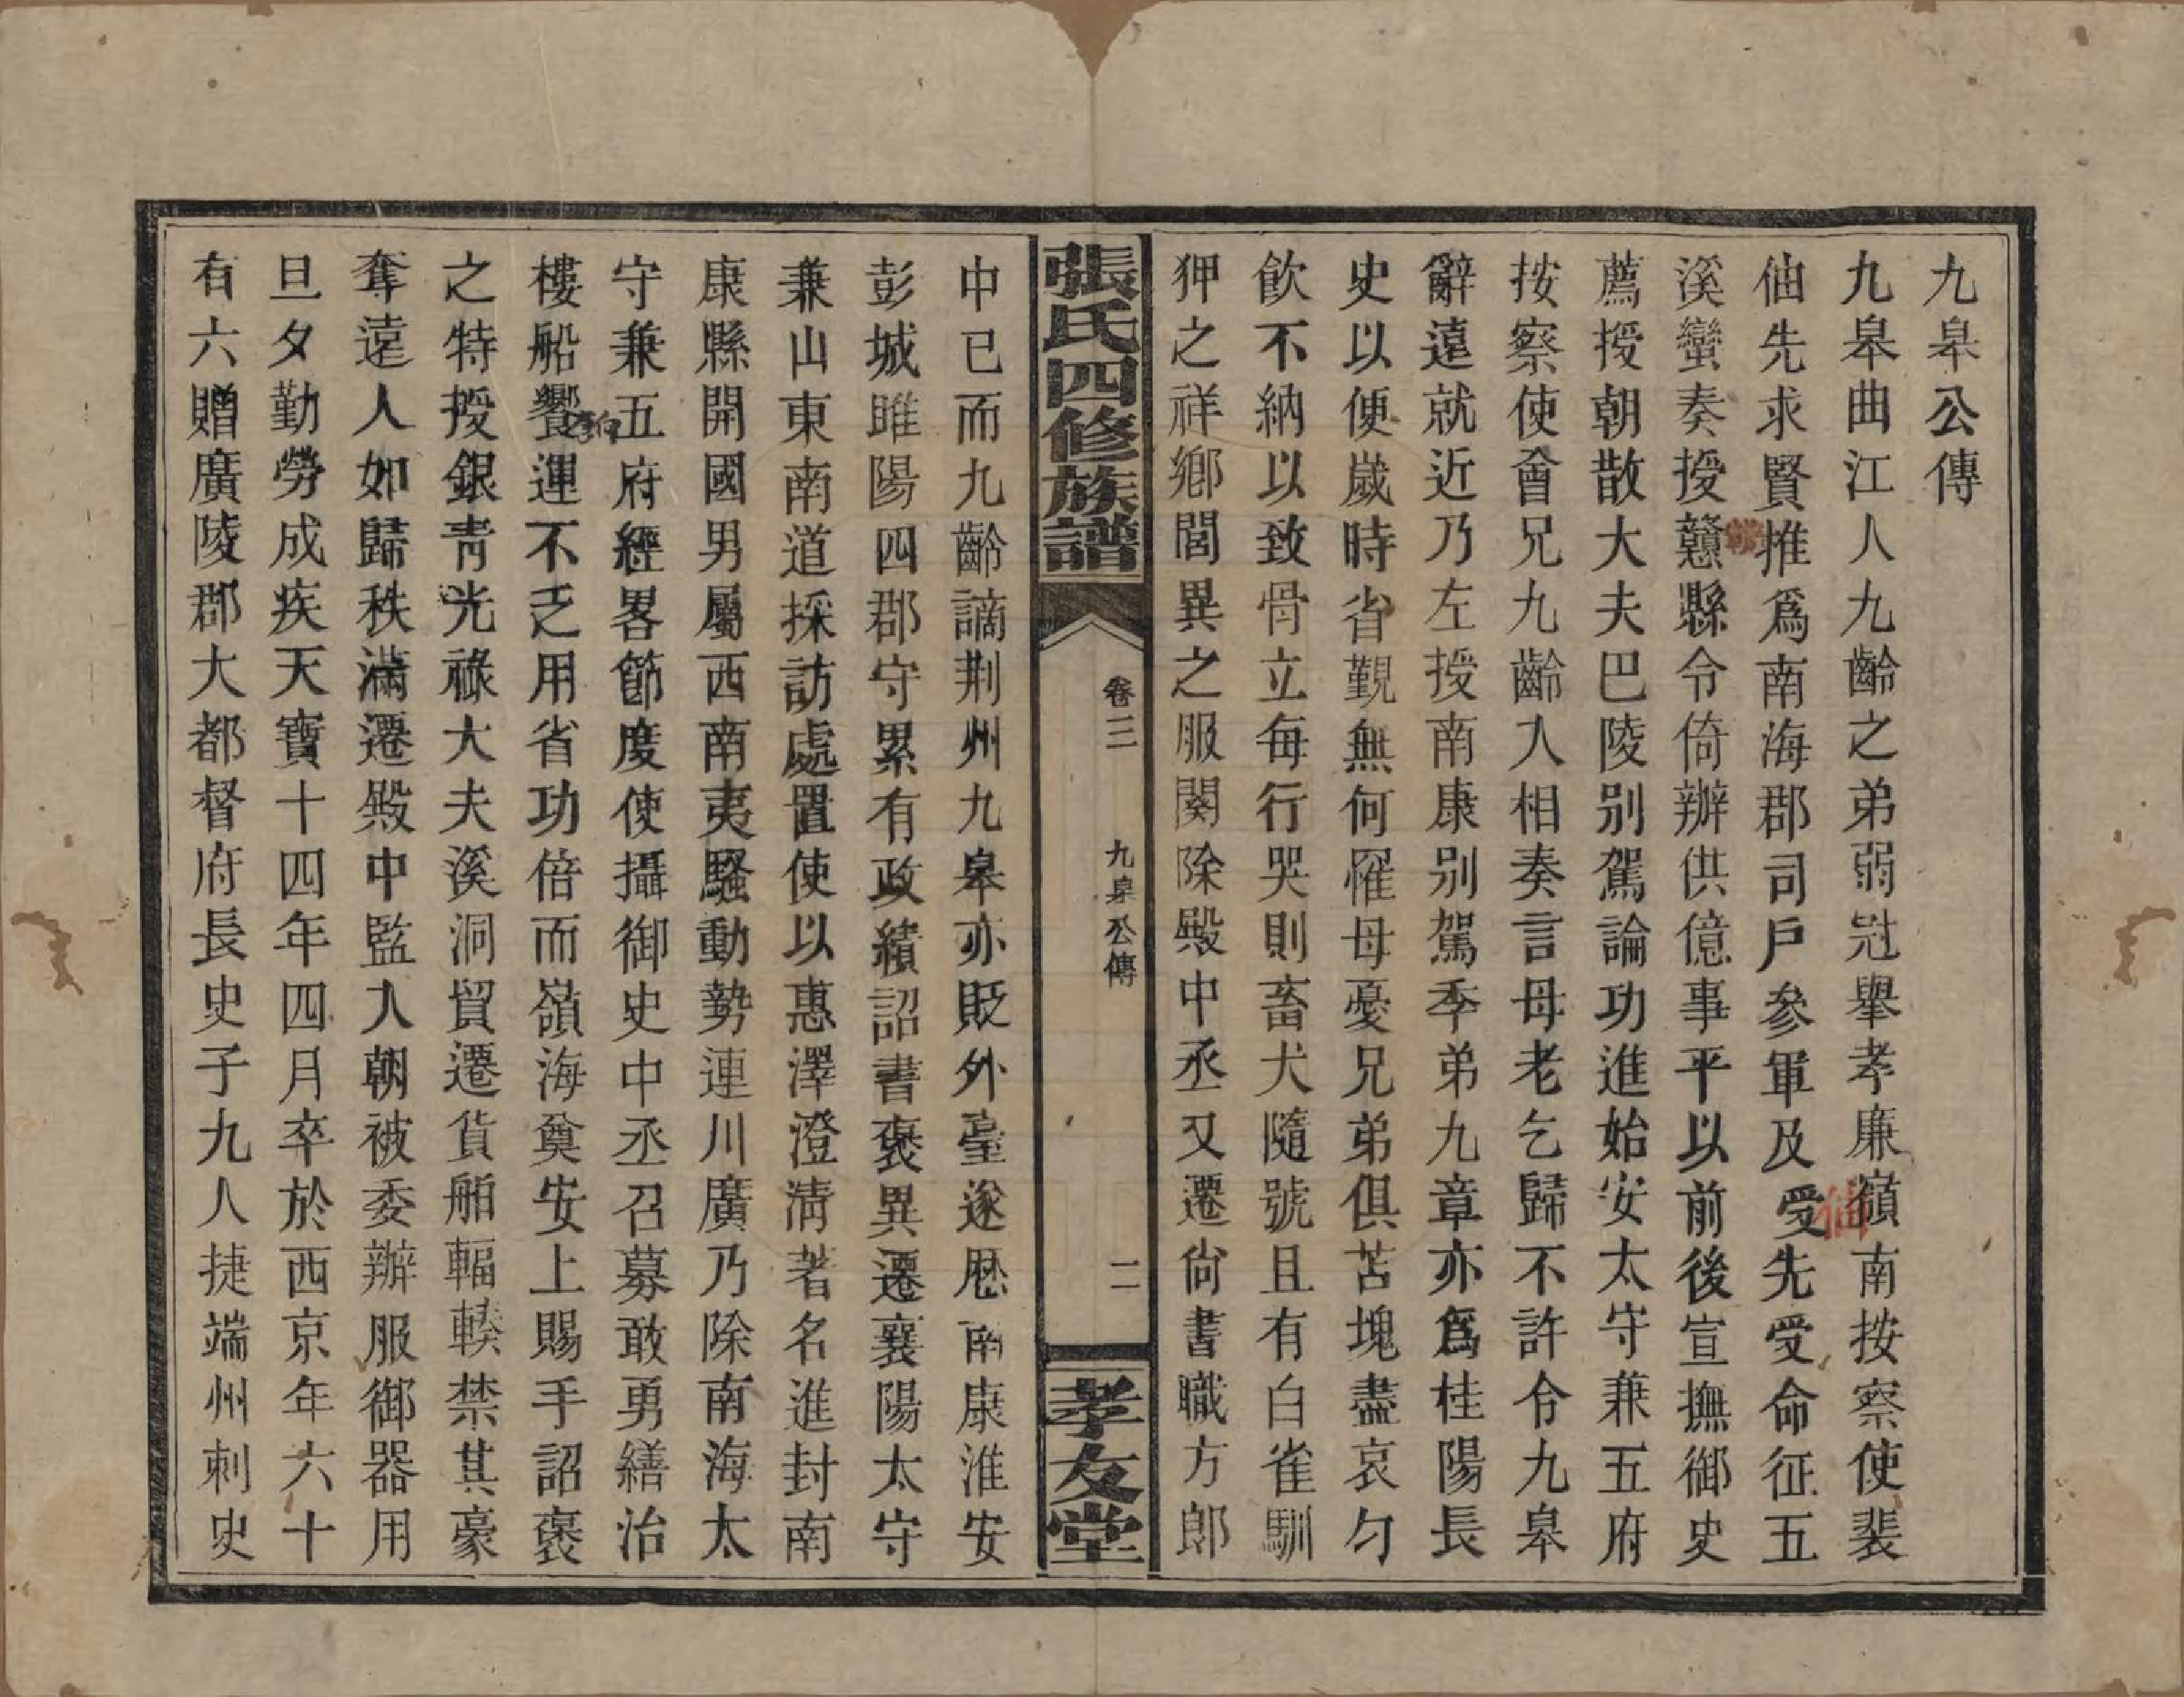 九皋公傳
九皋曲江人九齡之弟弱冠舉孝廉嶺南按察使裴
伷先求賢推爲南海郡司戶參軍及受先受命征五
溪蠻奏授贛縣令倚辦供億事平以前後宣撫御史
薦授朝散大夫巴陵別駕論功進始安太守兼五府
按察使會兄九齡入相奏言母老乞歸不許令九皋
辭遠就近乃左授南康別駕季弟九章亦爲桂陽長
史以便歲時省覲無何罹母憂兄弟俱苫塊盡哀勺
飲不納以致骨立每行哭則畜犬隨號且有白雀馴
狎之祥鄉閭異之服闋除殿中丞又遷尙書職方郎
張氏四修族譜
卷三
九皋公傳
二
孝友堂
中已而九齡謫荆州九皋亦貶外臺遂厯南康淮安
彭城睢陽四郡守累有政績詔書褒異遷襄陽太守
兼山東南道採訪處置使以惠澤澄淸著名進封南
康縣開國男屬西南夷騷動勢連川廣乃除南海太
守兼五府經畧節度使攝御史中丞召募敢勇繕治
樓船饗運不乏用省功倍而嶺海奠安上賜手詔褒
之特授銀青光祿大夫溪洞貿遷貨舶輻輳禁其豪
奪遠人如歸秩滿遷殿中監入朝被委辦服御器用
旦夕勤勞成疾天寶十四年四月卒於西京年六十
有六贈廣陵郡大都督府長史子九人捷端州刺史
伷